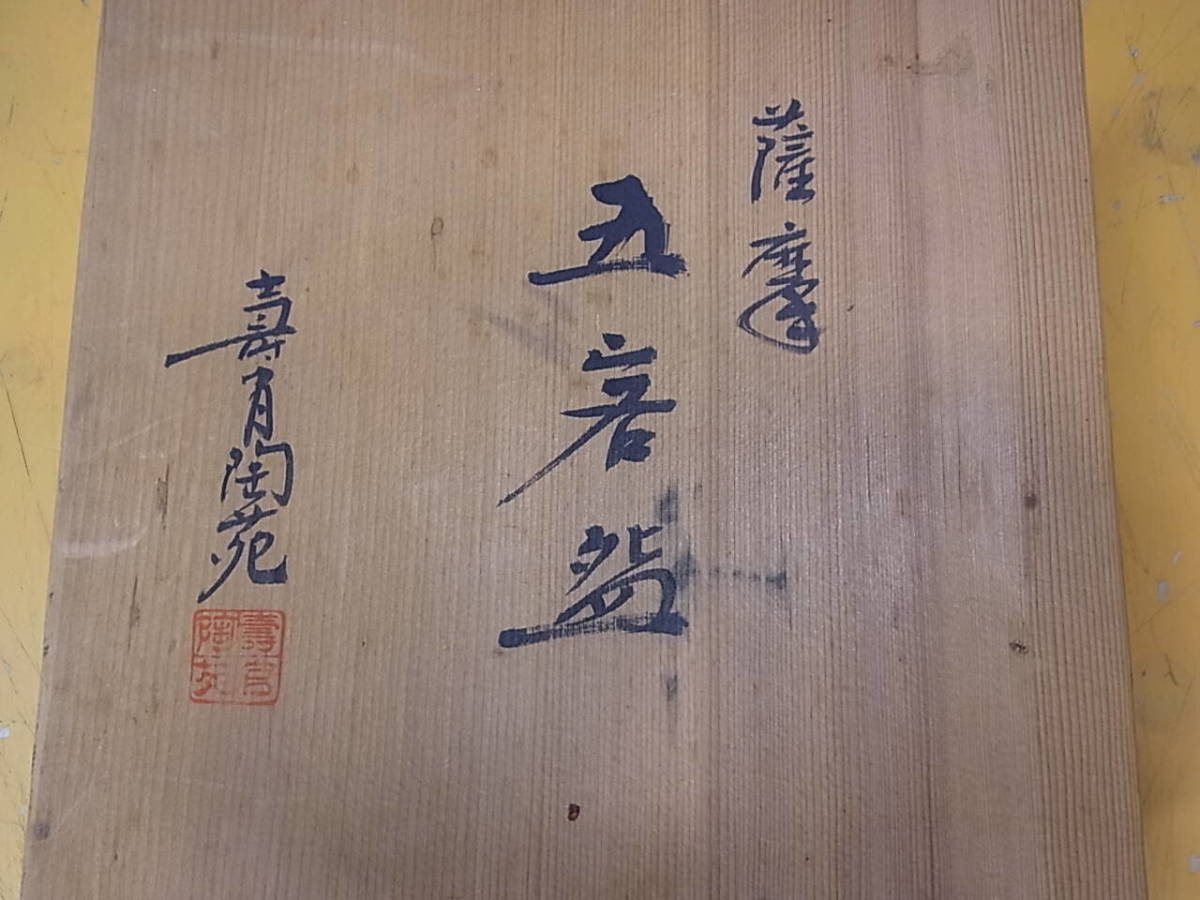 薩摩
五客盌
壽官陶苑
壽官
陶苑